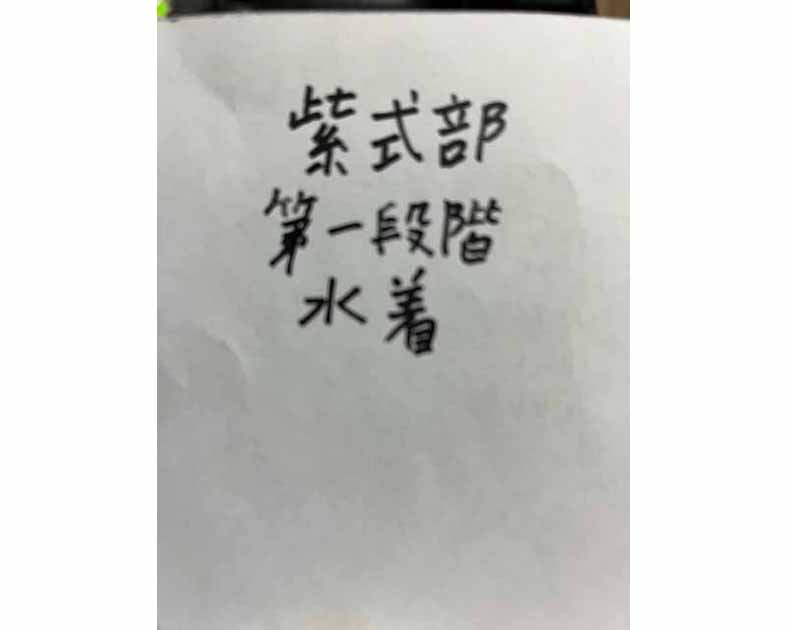 紫式部
第一段階
水着